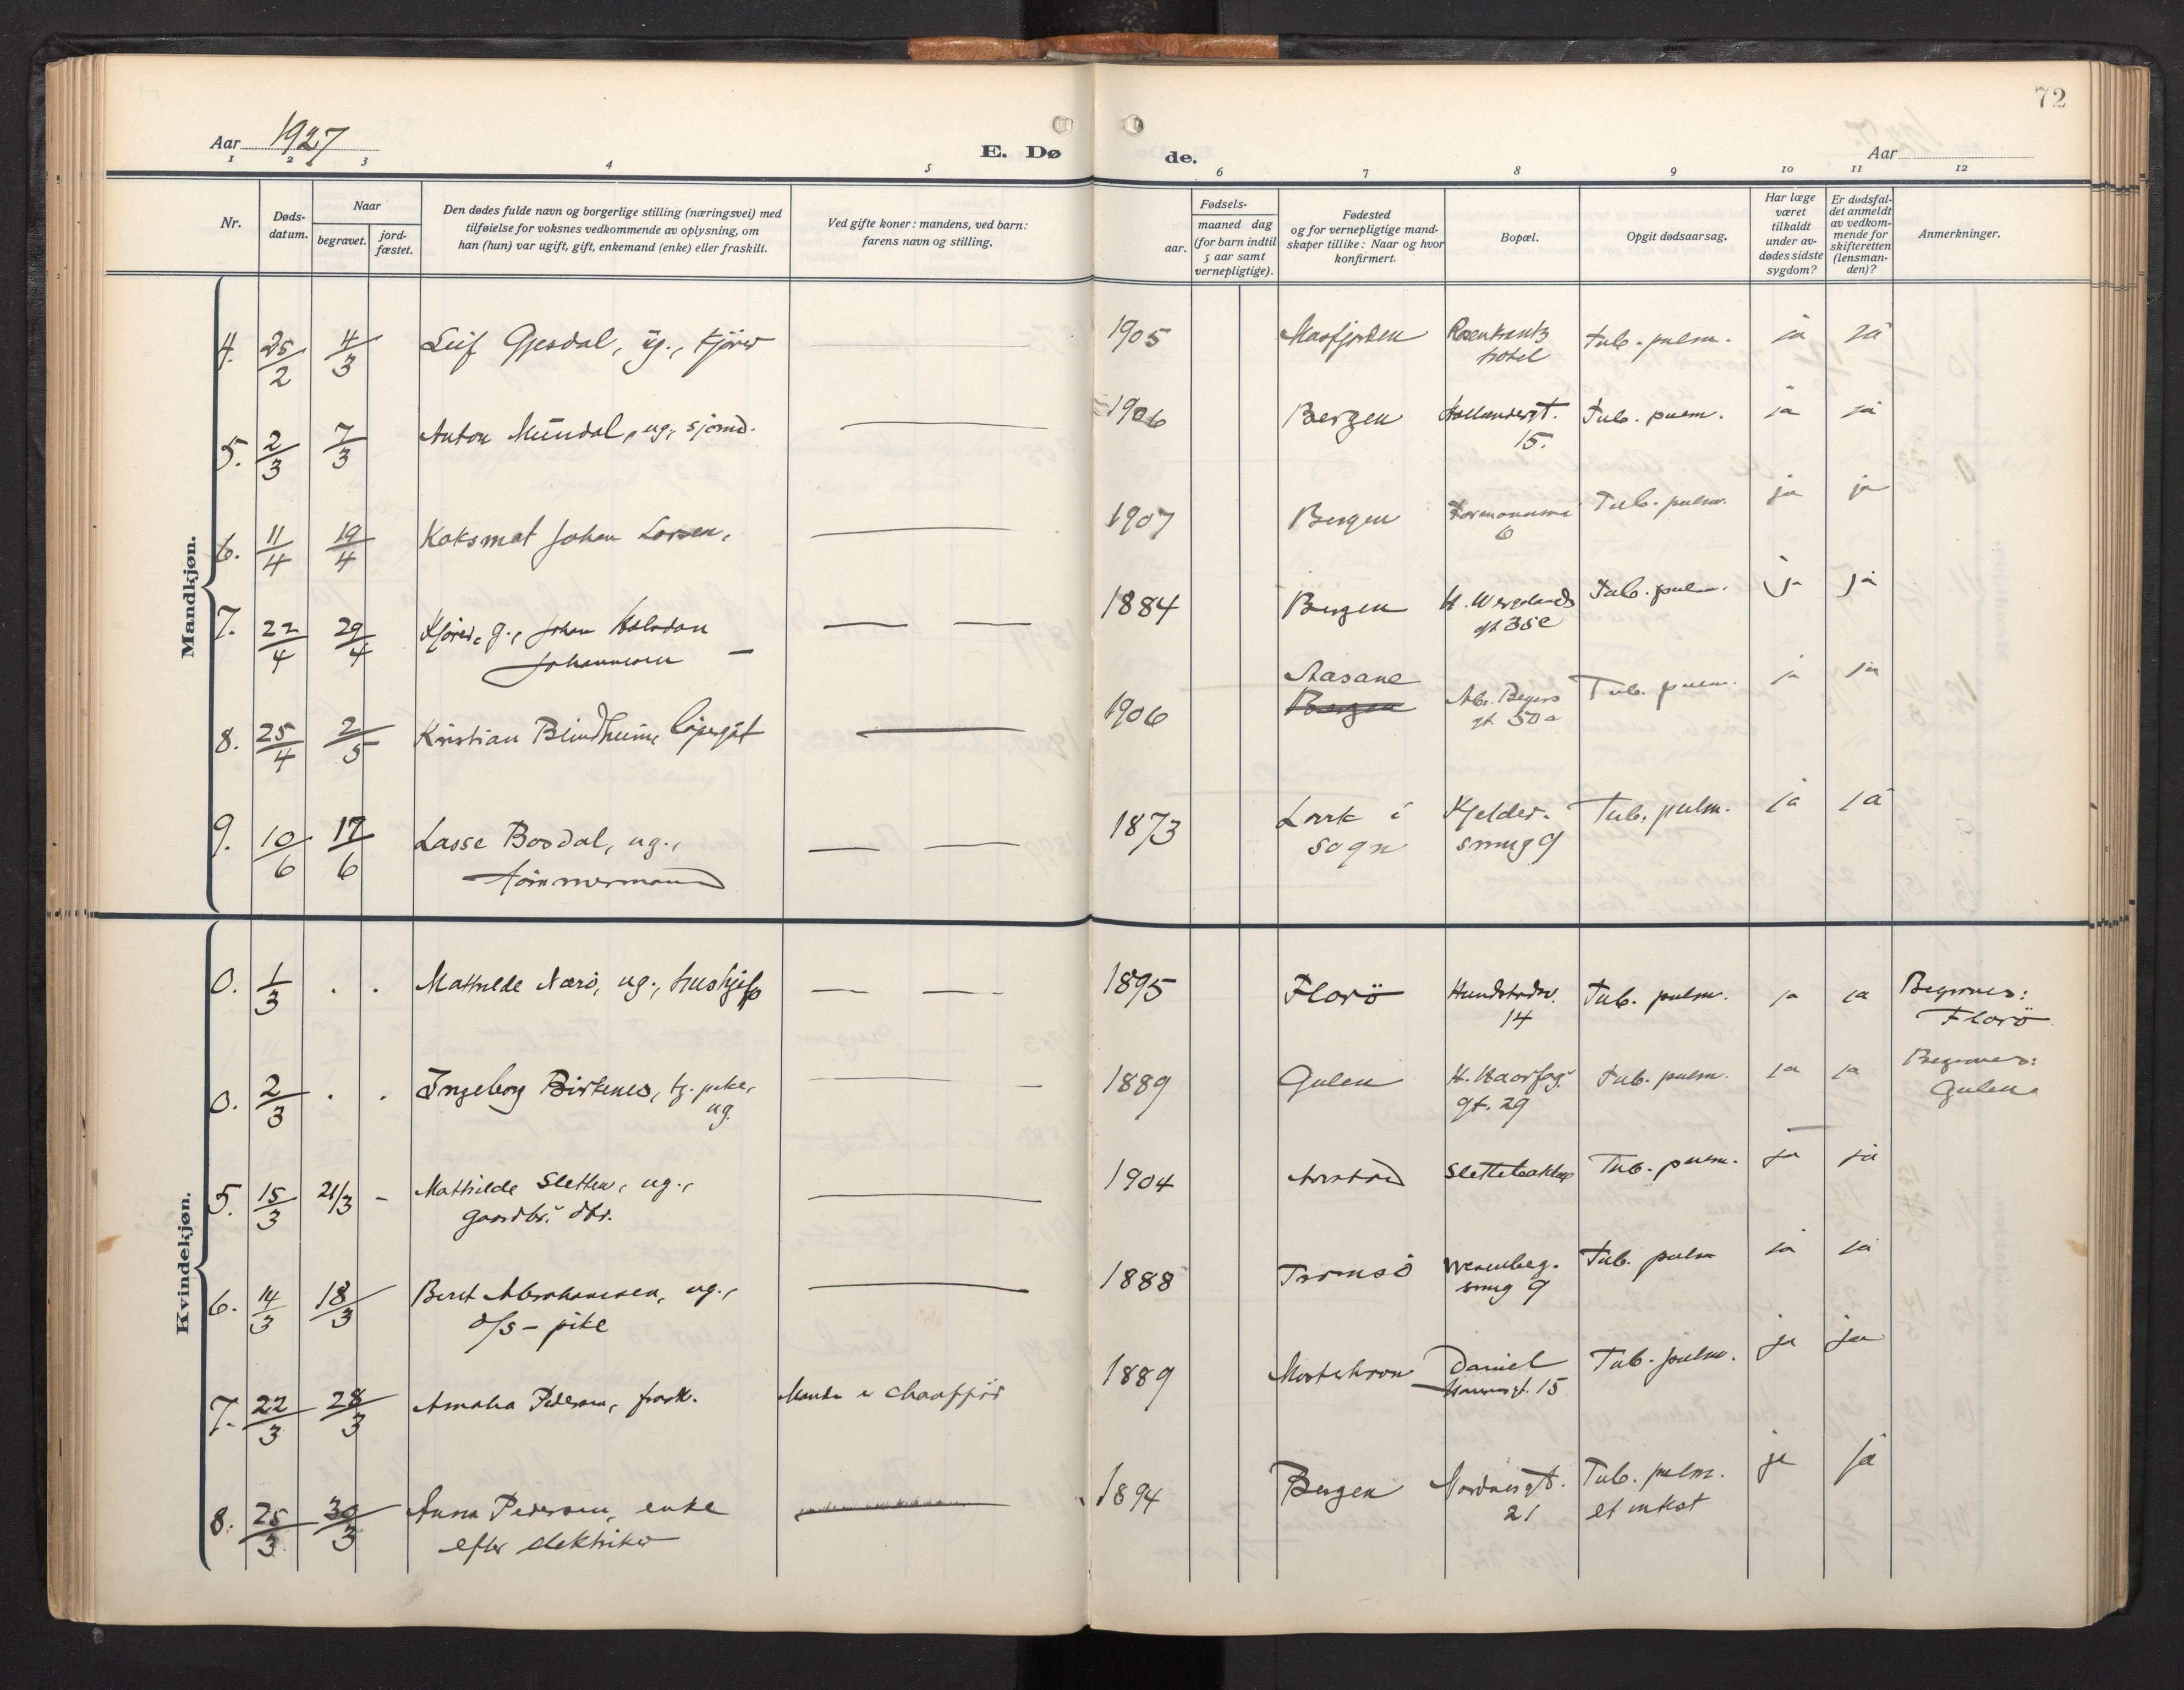 72
Aar 1927
E. Dø
de.
Aar
1 2 3 4 5 6 7 8 9 10 11 12
Nr.
Døds-
datum.
Naar
begravet.
jord-
fæstet.
Den dødes fulde navn og borgerlige stilling (næringsvei) med
tilføielse for voksnes vedkommende av oplysning, om
han (hun) var ugift, gift, enkemand (enke) eller fraskilt.
Ved gifte koner: mandens, ved barn:
farens navn og stilling.
aar.
Fødsels-
maaned dag
(for barn indtil
5 aar samt
vernepligtige).
Fødested
og for vernepligtige mand-
skaper tillike: Naar og hvor
konfirmert.
Bopæl.
Opgit dødsaarsag.
Har læge
været
tilkaldt
under av-
dødes sidste
sygdom?
Er dødsfal-
det anmeldt
av vedkom-
mende for
skifteretten
(lensman-
den)?
Anmerkninger.
Mandkjøn.
4. 25/2 4/3 Leif Gjesdal, ug., kjører — 1905 Masfjorden Rosenkrantz tub. pulm. ja ja
hotel
5. 2/3 7/3 Anton Mundal, ug., sjømd. — 1906 Bergen Hollendergt. Tub. pulm. ja ja
15.
6. 11/4 19/4 Koksmat Johan Larsen, — 1907 Bergen Tub. pulm. ja ja
6
7. 22/4 29/4 Kjører, g., Johan Halvdan — — 1884 Bergen H. Wergelands Tub. pulm. ja ja
Johannesen — gt 35c
8. 25/4 2/5 Kristian Blindheim, — 1906 Aasane Tub. pulm. ja ja
Bergen gt 50a
9. 10/6 17/6 Lasse Bosdal, ug., — — 1873 i Kjelder- Tub. pulm. ja ja
tømmermand Sogn smug 9
Kvindekjøn.
0. 1/3 . . Mathilde Nærø, ug., hushjelp — — 1895 Florö Tub. pulm. ja ja Begraves:
14 Florö
0. 2/3 . . Ingeborg Birkenes, tj. pike, — — 1889 Gulen H. Haarfag. Tub. pulm. ja ja Begraves:
ug. gt. 29 Gulen
5. 15/3 21/3 - Mathilde Sletten, ug., — 1904 Aarstad Slettebakken Tub. pulm. ja ja
gaardbr. dtr.
6. 14/3 18/3 Beret Abrahamsen, ug., — 1888 Tromsö Wesenberg. Tub. pulm ja ja
d/s - pike smug 9
7. 22/3 28/3 Amalia Pedersen, frask. chaufför 1889 Mosterhavn Daniel Tub. pulm. ja ja
Hansensgt. 15
8. 25/3 30/3 Anna Pedersen, enke 1894 Bergen Nordnesgt. Tub. pulm. ja ja
efter elektriker 21